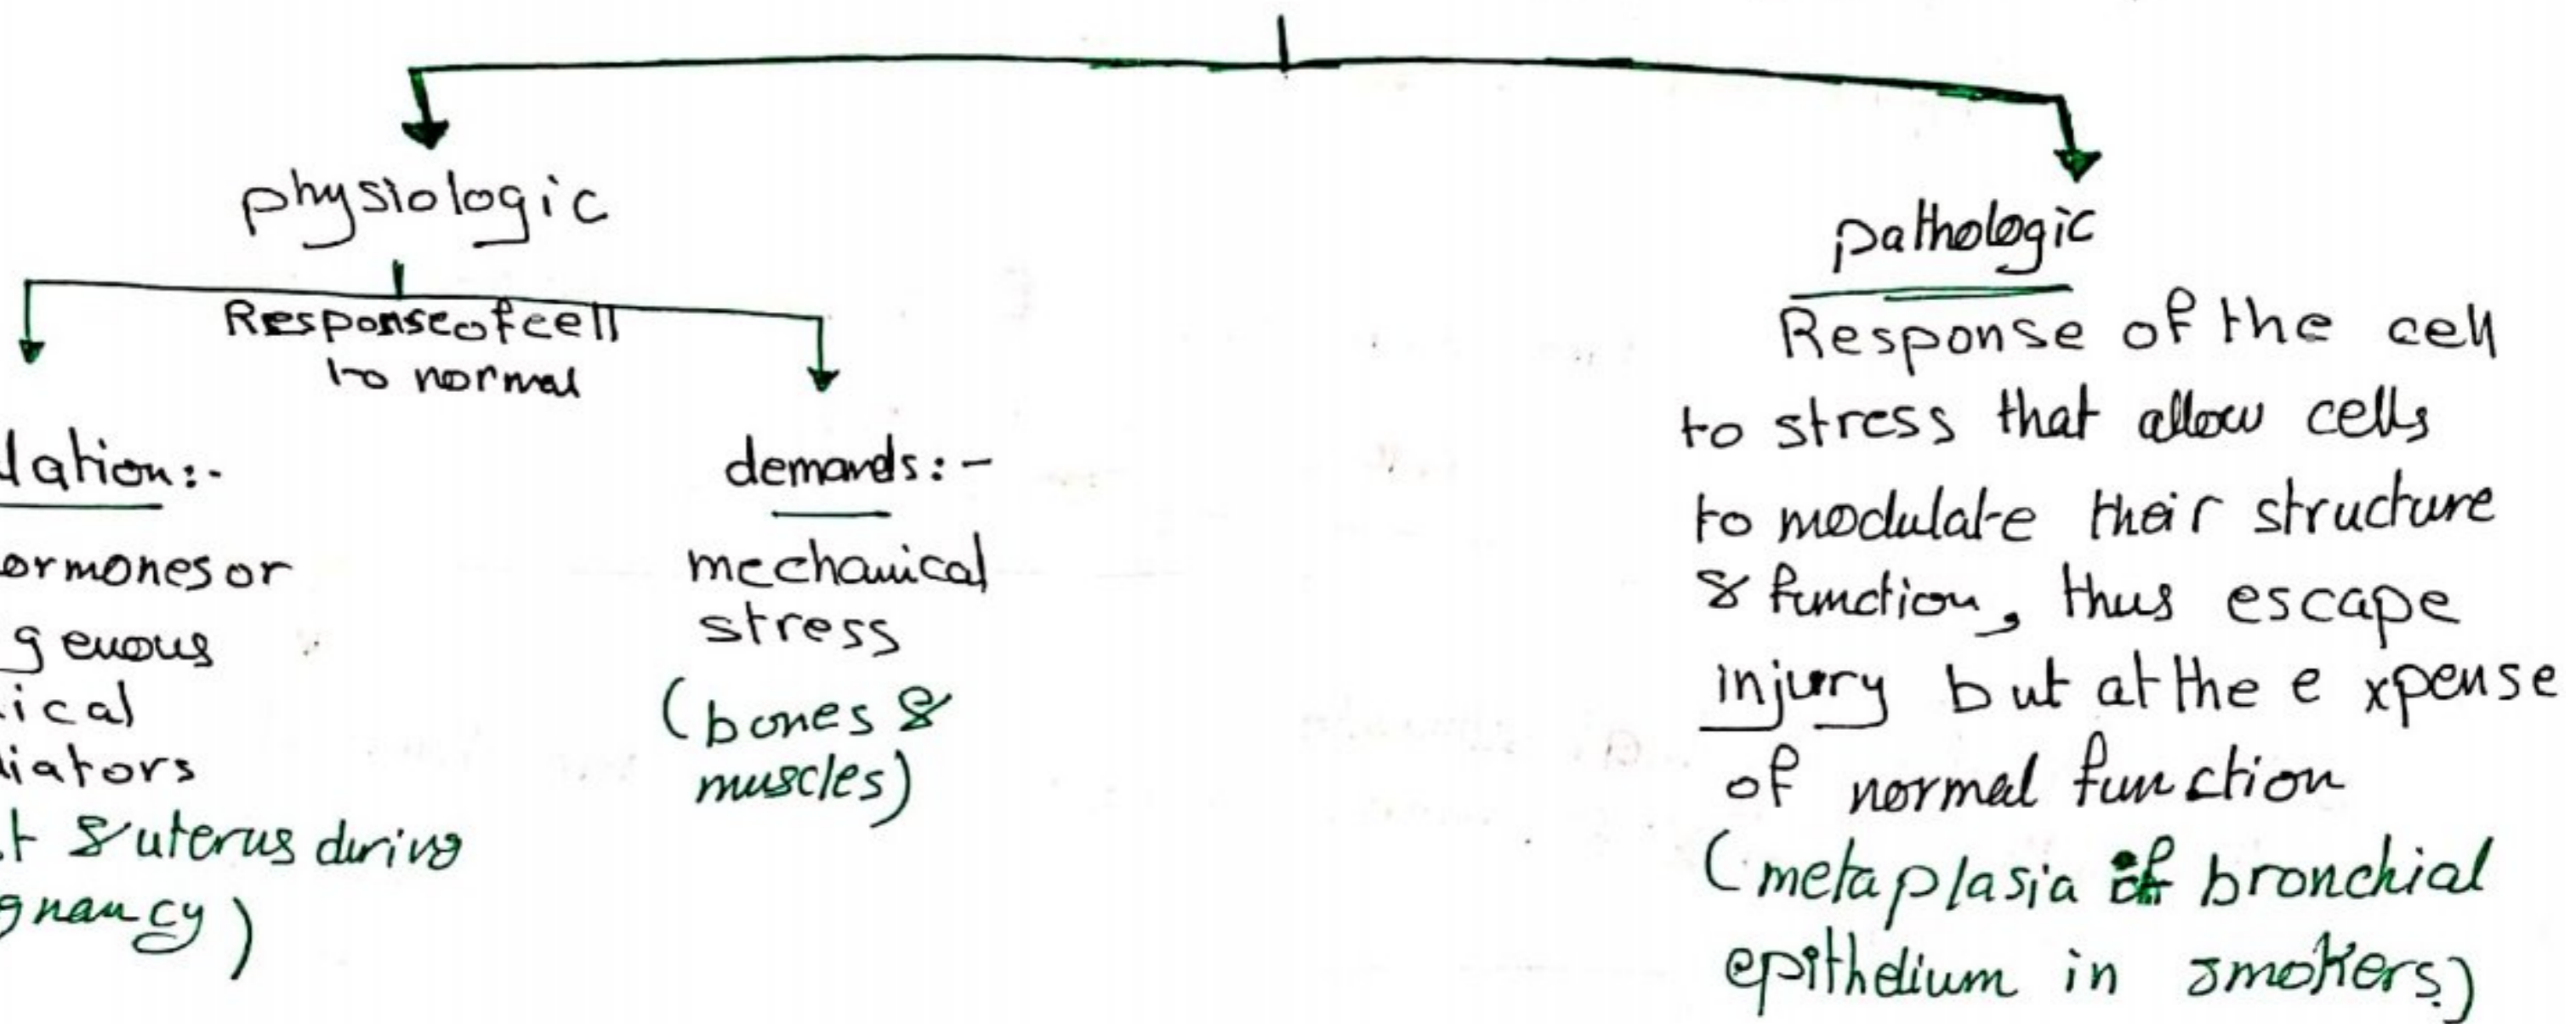 physiologic
Response of cell
to normal
lation:-
ormones or
genous
ical
diators
t & uterus during
gnancy)
demands:-
mechanical
stress
(bones &
muscles)
pathologic
Response of the cell
to stress that allow cells
to modulate their structure
& function, thus escape
injury but at the expense
of normal function
(metaplasia of bronchial
epithelium in smokers)